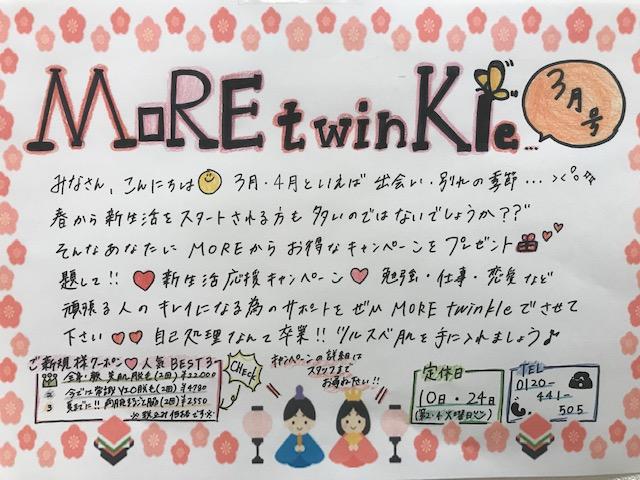 MoRE twinkle...
3月号
みなさん、こんにちは 3月・4月といえば 出会い・別れの季節...
春から新生活をスタートされる方も多いのではないでしょうか??
そんなあなたに MOREから お得なキャンペーンを プレゼント
題して!! ♥ 新生活応援キャンペーン ♥ 勉強・仕事・恋愛など
頑張る人の キレイになる為のサポートを ぜひ MORE twinkle でさせて
下さい ♥♥ 自己処理なんて卒業!! ツルスベ肌を手に入れましょう♪
ご新規様クーポン♥人気BEST3
全身+顔 美肌脱毛(2回) ¥22000
2 今では常識 VIO脱毛(2回) ¥4980
3 夏までに!! 両脇まるごと脇(2回) ¥2550
※税込み価格です※
CHECK
キャンペーンの詳細は
スタッフまで
お尋ねください!!
定休日
10日・24日
(第2・4火曜日)
TEL
0120-
441-
505